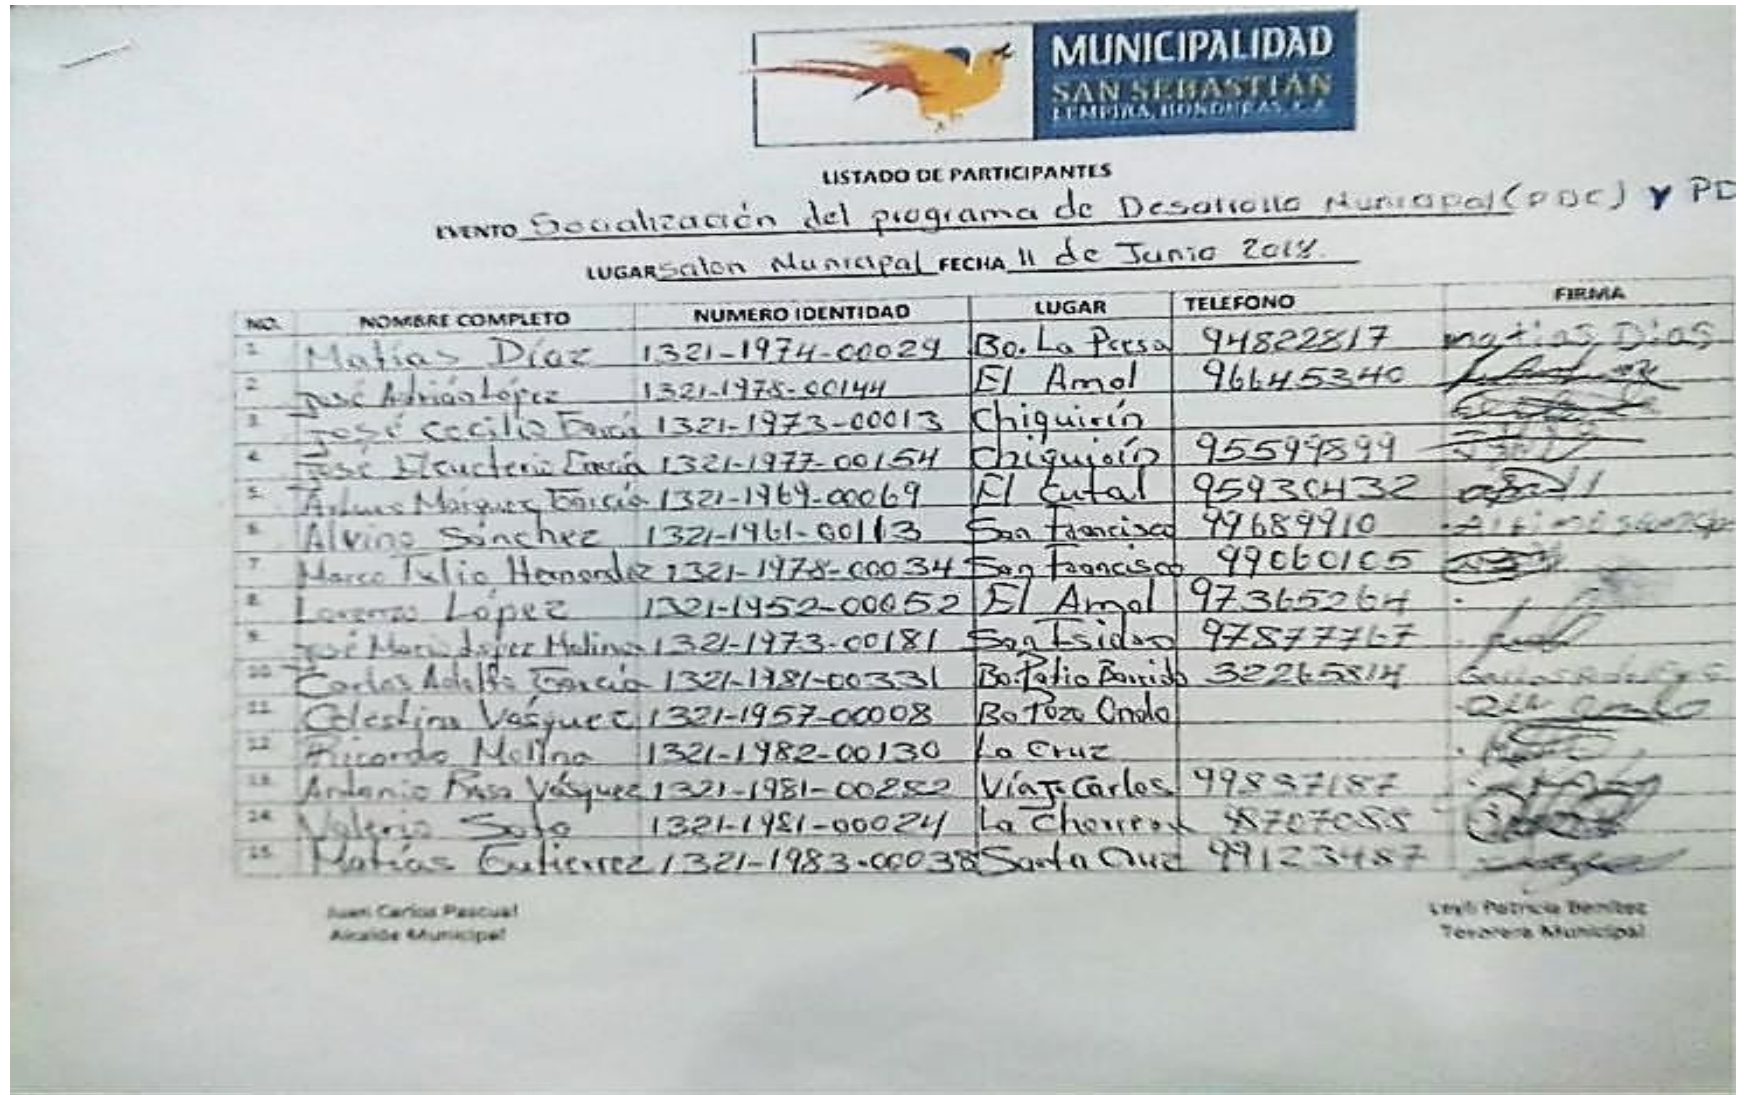 MUNICIPALIDAD
SAN SEBASTIÁN
LEMPIRA, HONDURAS, C.A.
LISTADO DE PARTICIPANTES
EVENTO Socialización del programa de Desarrollo Municipal (PDC) y PD
LUGAR Salon Municipal FECHA 11 de Junio 2018.
NO. NOMBRE COMPLETO NUMERO IDENTIDAD LUGAR TELEFONO FIRMA
1 Matías Díaz 1321-1974-00029 Bo. La Presa 94822817 matias Dias
2 José Adrián López 1321-1978-00144 El Amol 96645340
3 José Cecilio García 1321-1973-00013 Chiquirín
4 José Eleucterio García 1321-1977-00154 Chiquirín 95599899
5 Márquez García 1321-1969-00069 El 95930432
6 Alvino Sánchez 1321-1961-00113 San Francisco 99689910
7 Marco Tulio Hernandez 1321-1978-00034 San Francisco 99060105
8 Lorenzo López 1321-1952-00052 El Amol 97365264
9 José Mario López Molina 1321-1973-00181 San Isidro 97877767
10 Carlos Adolfo García 1321-1981-00331 Bo. Patio Barrido 32265814
11 Celestino Vásquez 1321-1957-00008 Bo Pozo Ondo
12 Ricardo Molina 1321-1982-00130 La Cruz
13 Antonio Vásquez 1321-1981-00282 Carlos 99837187
14 Valerio Soto 1321-1981-00024 La 98707088
15 Matías Gutierrez 1321-1983-00038 Santa Cruz 99123487
Juan Carlos Pascual
Alcalde Municipal
Patricia Benitez
Tesorera Municipal